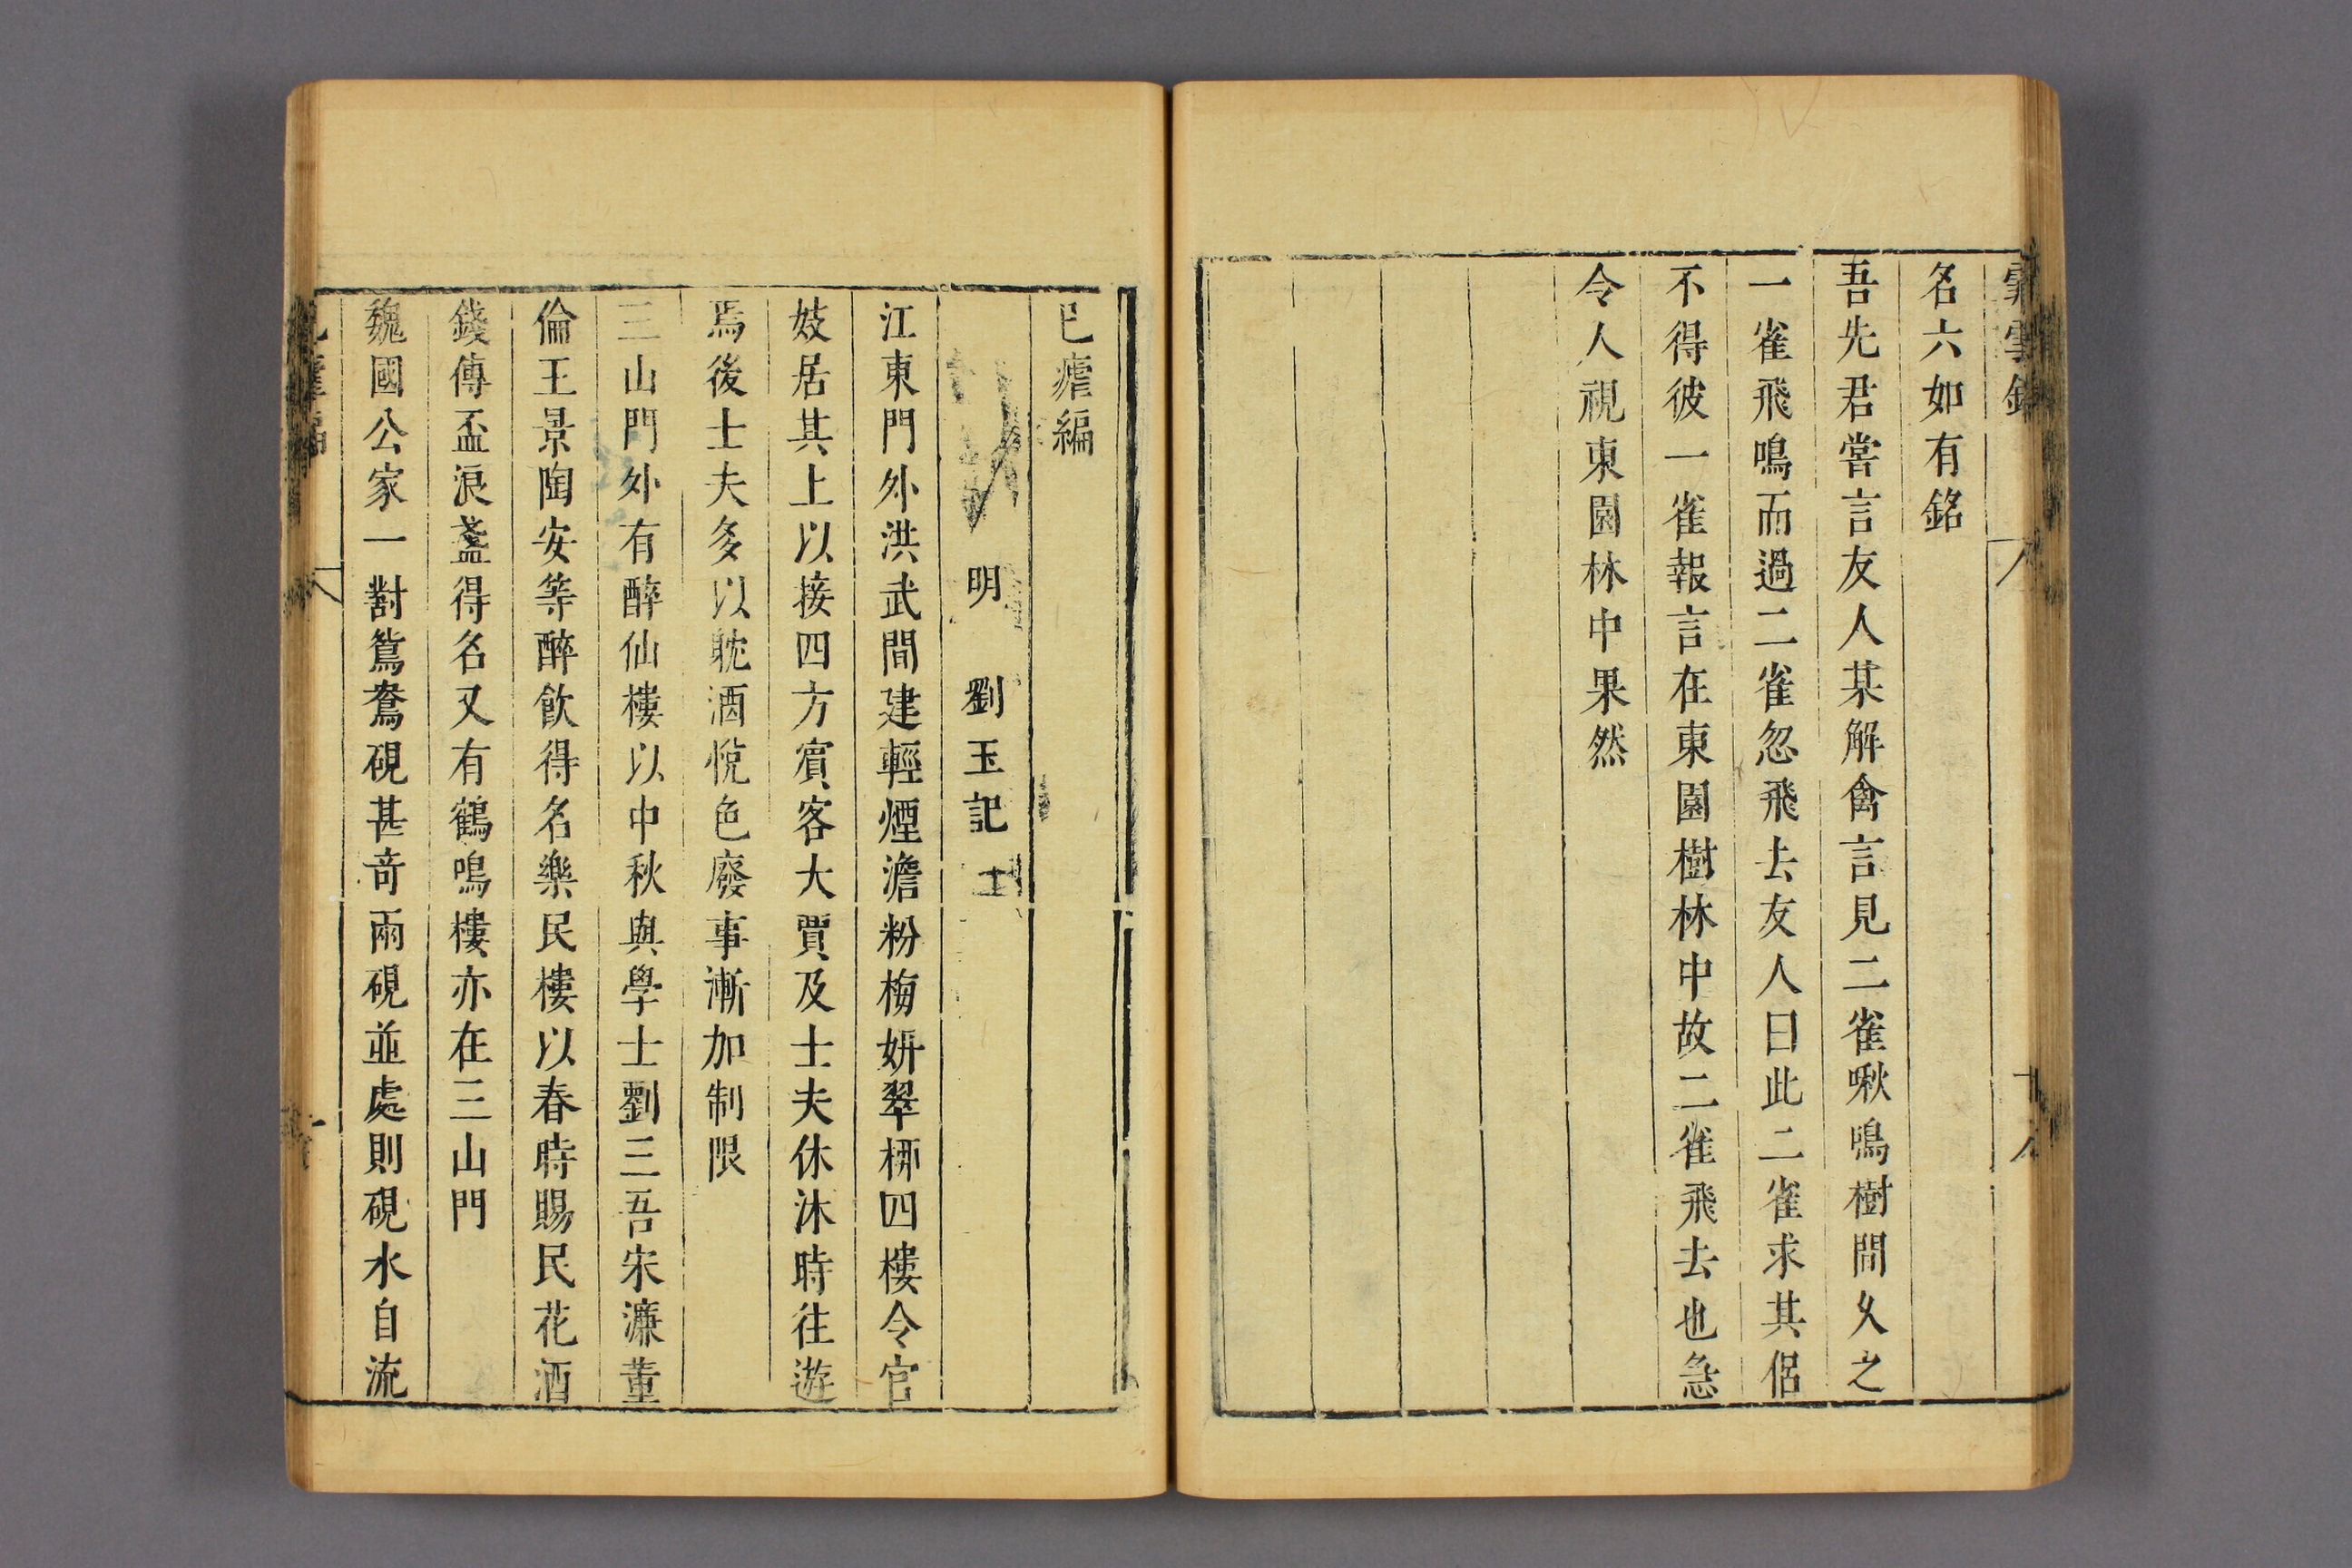 名六如有銘
吾先君嘗言友人某解禽言見二雀啾鳴樹間久之
一雀飛鳴而過二雀忽飛去友人曰此二雀求其侶
不得彼一雀報言在東園樹林中故二雀飛去也急
令人視東園林中果然
已瘧編
明 劉玉記
江東門外洪武間建輕煙澹粉梅妍翠桞四樓令官
妓居其上以接四方賓客大賈及士夫休沐時往遊
焉後士夫多以躭酒悅色廢事漸加制限
三山門外有醉仙樓以中秋與學士劉三吾宋濂董
倫王景陶安等醉飲得名樂民樓以春時賜民花酒
錢傳盃浪盞得名又有鶴鳴樓亦在三山門
魏國公家一對鴛鴦硯甚奇兩硯並處則硯水自流